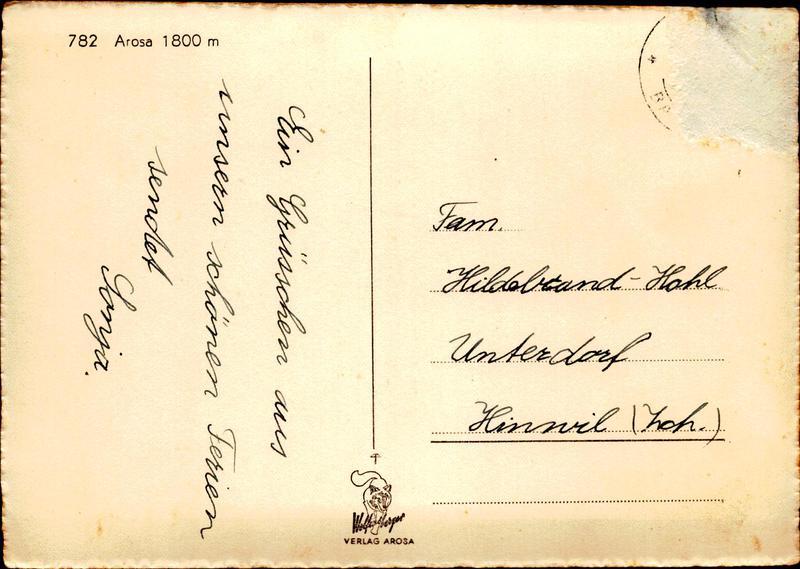 782 Arosa 1800 m
Ein Grüsschen aus
unsern schönen Ferien
sendet
Sonja.
Fam.
Hildebrand-Hohl
Unterdorf
Hinwil (Zch.)
VERLAG AROSA